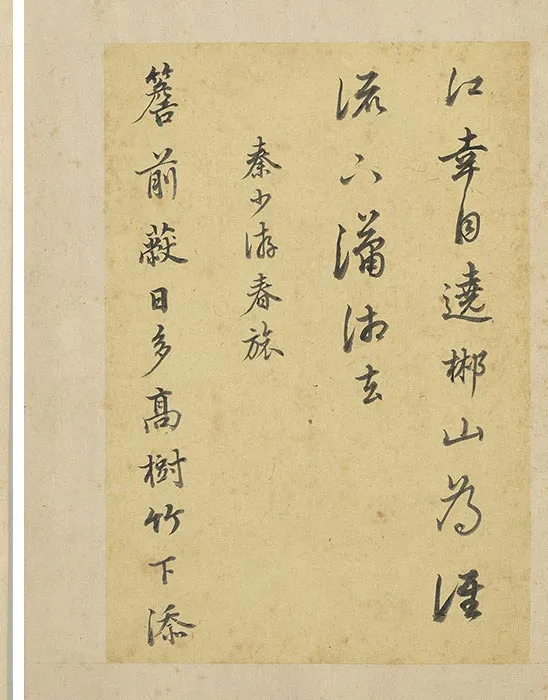 江幸自遶郴山為誰
流下瀟湘去
秦少游春旅
簷前蔽日多高樹竹下添